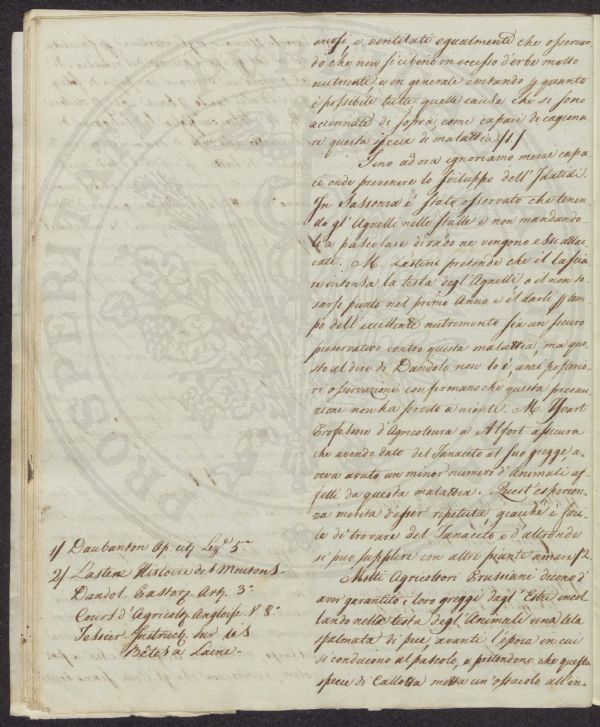 ariosi e ventilati egualmente che osservan
do che non si cibino in eccesso d'erbe molto
nutrienti e in generale evitando p quanto
è possibile tutte quelle cause che si sono
accennate di sopra come capaci di cagiona
re questa specie di malattia /1/
Sino ad ora ignoriamo mezzi capa
ci onde prevenire lo sviluppo dell'Idatidi.
In Sassonia è stato osservato che tenen
do gl'Agnelli nelle stalle e non mandando
li a pascolare di rado ne vengono essi attac
cati. M. Lasterie pretende che il lascia
re intonsa la testa degl'Agnelli o il non to
sarsi punto nel primo Anno e il darli p tem
po dell'eccellente nutrimento sia un sicuro
preservativo contro questa malattia, ma que
sto al dire di Dandolo non lo è, anzi posterio
ri osservazioni confermano che questa precau
zione non ha servito a niente. M. Yvart
Professore d'Agricoltura a Alfort assicura
che avendo dato del Tanaceto al suo gregge a
veva avuto un minor numero d'Animali af
fetti da questa malattia. Quest'esperien
za merita d'esser ripetuta giacchè è faci
le di trovare del Tanaceto e d'altronde
si può supplire con altre piante amare /2
Molti Agricoltori Prussiani dicono d'
aver garantito i loro greggi dagl'Estri incol
lando nella testa degl'Animali una tela
spalmata di pece, avanti l'epoca in cui
si conducono al pascolo, e pretendono che questa
specie di Callotta metta un'ostacolo all'in-
1/ Daubanton Op. cit. Lez. 5.a
2/ Lasterie Histoire des Moutons.
Dandol. Pastorz. Art. 3.
Cours d'Agricolt. Angloise T. 8.
Tessier Instruct. sur les
Bêtes a Laine.
PROSPERI IM